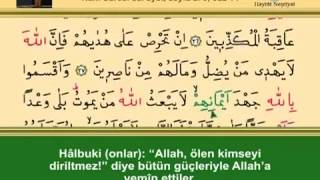 عَاقِبَةُ الْمُكَذِّبٖينَ ﴿٣٦﴾ اِنْ تَحْرِصْ عَلٰى هُدٰيهُمْ فَاِنَّ اللّٰهَ
لَا يَهْدٖى مَنْ يُضِلُّ وَمَالَهُمْ مِنْ نَاصِرٖينَ ﴿٣٧﴾ وَاَقْسَمُوا
بِاللّٰهِ جَهْدَ اَيْمَانِهِمْ لَا يَبْعَثُ اللّٰهُ مَنْ يَمُوتُ بَلٰى وَعْدًا
Hâlbuki (onlar): “Allah, ölen kimseyi
diriltmez!” diye bütün güçleriyle Allah’a
yemîn ettiler.